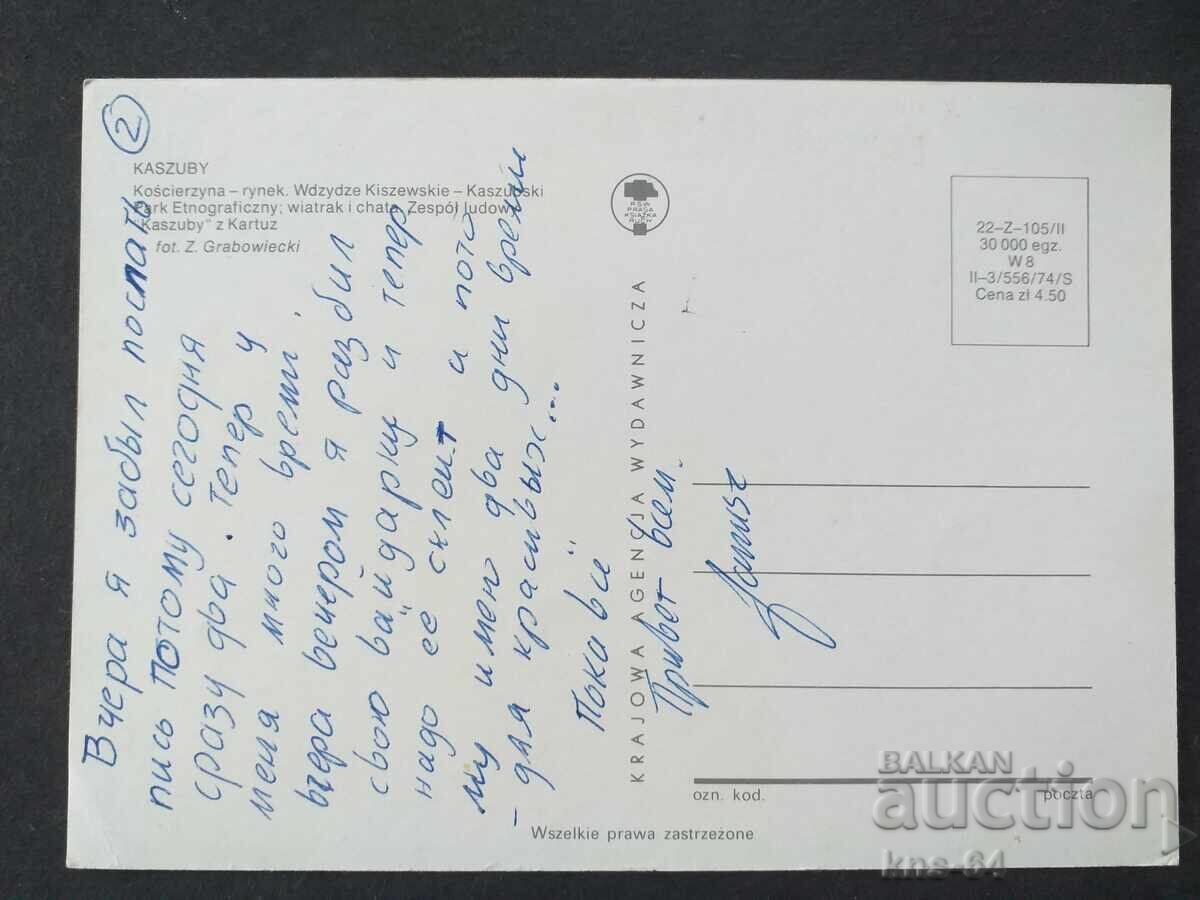 KASZUBY
Kościerzyna – rynek. Wdzydze Kiszewskie – Kaszubski
Park Etnograficzny; wiatrak i chata. Zespół ludowy
"Kaszuby" z Kartuz
fot. Z. Grabowiecki
RSW
PRASA
KSIĄŻKA
RUCH
22–Z–105/II
30 000 egz.
W 8
II–3/556/74/S
Cena zł 4.50
KRAJOWA AGENCJA WYDAWNICZA
2
Вчера я забыл послать
пись потому сегодня
сразу два. Тепер у
меня много время,
вчера вечером я разбил
свою байдарку и тепер
надо её склеит а пото
му имею два дни время
– для красивых...
Пока всё
Привет всем.
ozn. kod.
poczta
Wszelkie prawa zastrzeżone
BALKAN
auction
kns-64